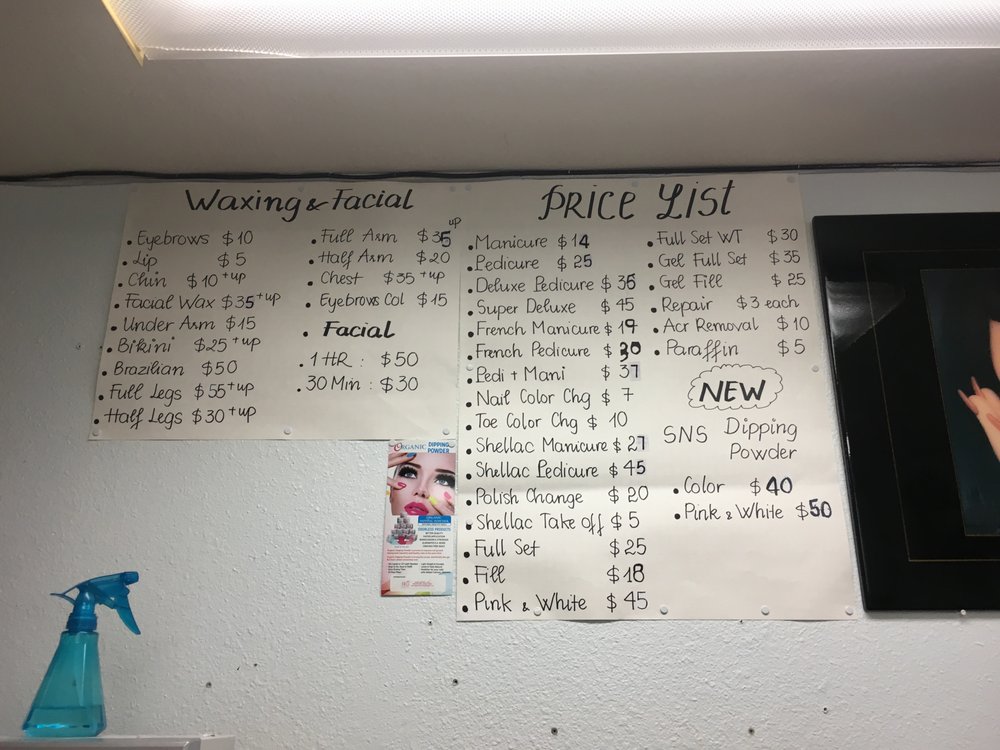 Waxing & Facial
• Eyebrows $10
• Lip $5
• Chin $10 +up
• Facial Wax $35 +up
• Under Arm $15
• Bikini $25 +up
• Brazilian $50
• Full Legs $55 +up
• Half Legs $30 +up
• Full Arm $35 up
• Half Arm $20
• Chest $35 +up
• Eyebrows Col $15
• Facial
• 1 HR : $50
• 30 Min : $30
Price List
• Manicure $14
• Pedicure $25
• Deluxe Pedicure $36
• Super Deluxe $45
• French Manicure $19
• French Pedicure $30
• Pedi + Mani $37
• Nail Color Chg $7
• Toe Color Chg $10
• Shellac Manicure $27
• Shellac Pedicure $45
• Polish Change $20
• Shellac Take off $5
• Full Set $25
• Fill $18
• Pink & White $45
• Full Set WT $30
• Gel Full Set $35
• Gel Fill $25
• Repair $3 each
• Acr Removal $10
• Paraffin $5
NEW
SNS Dipping
Powder
• Color $40
• Pink & White $50
ORGANIC DIPPING
POWDER